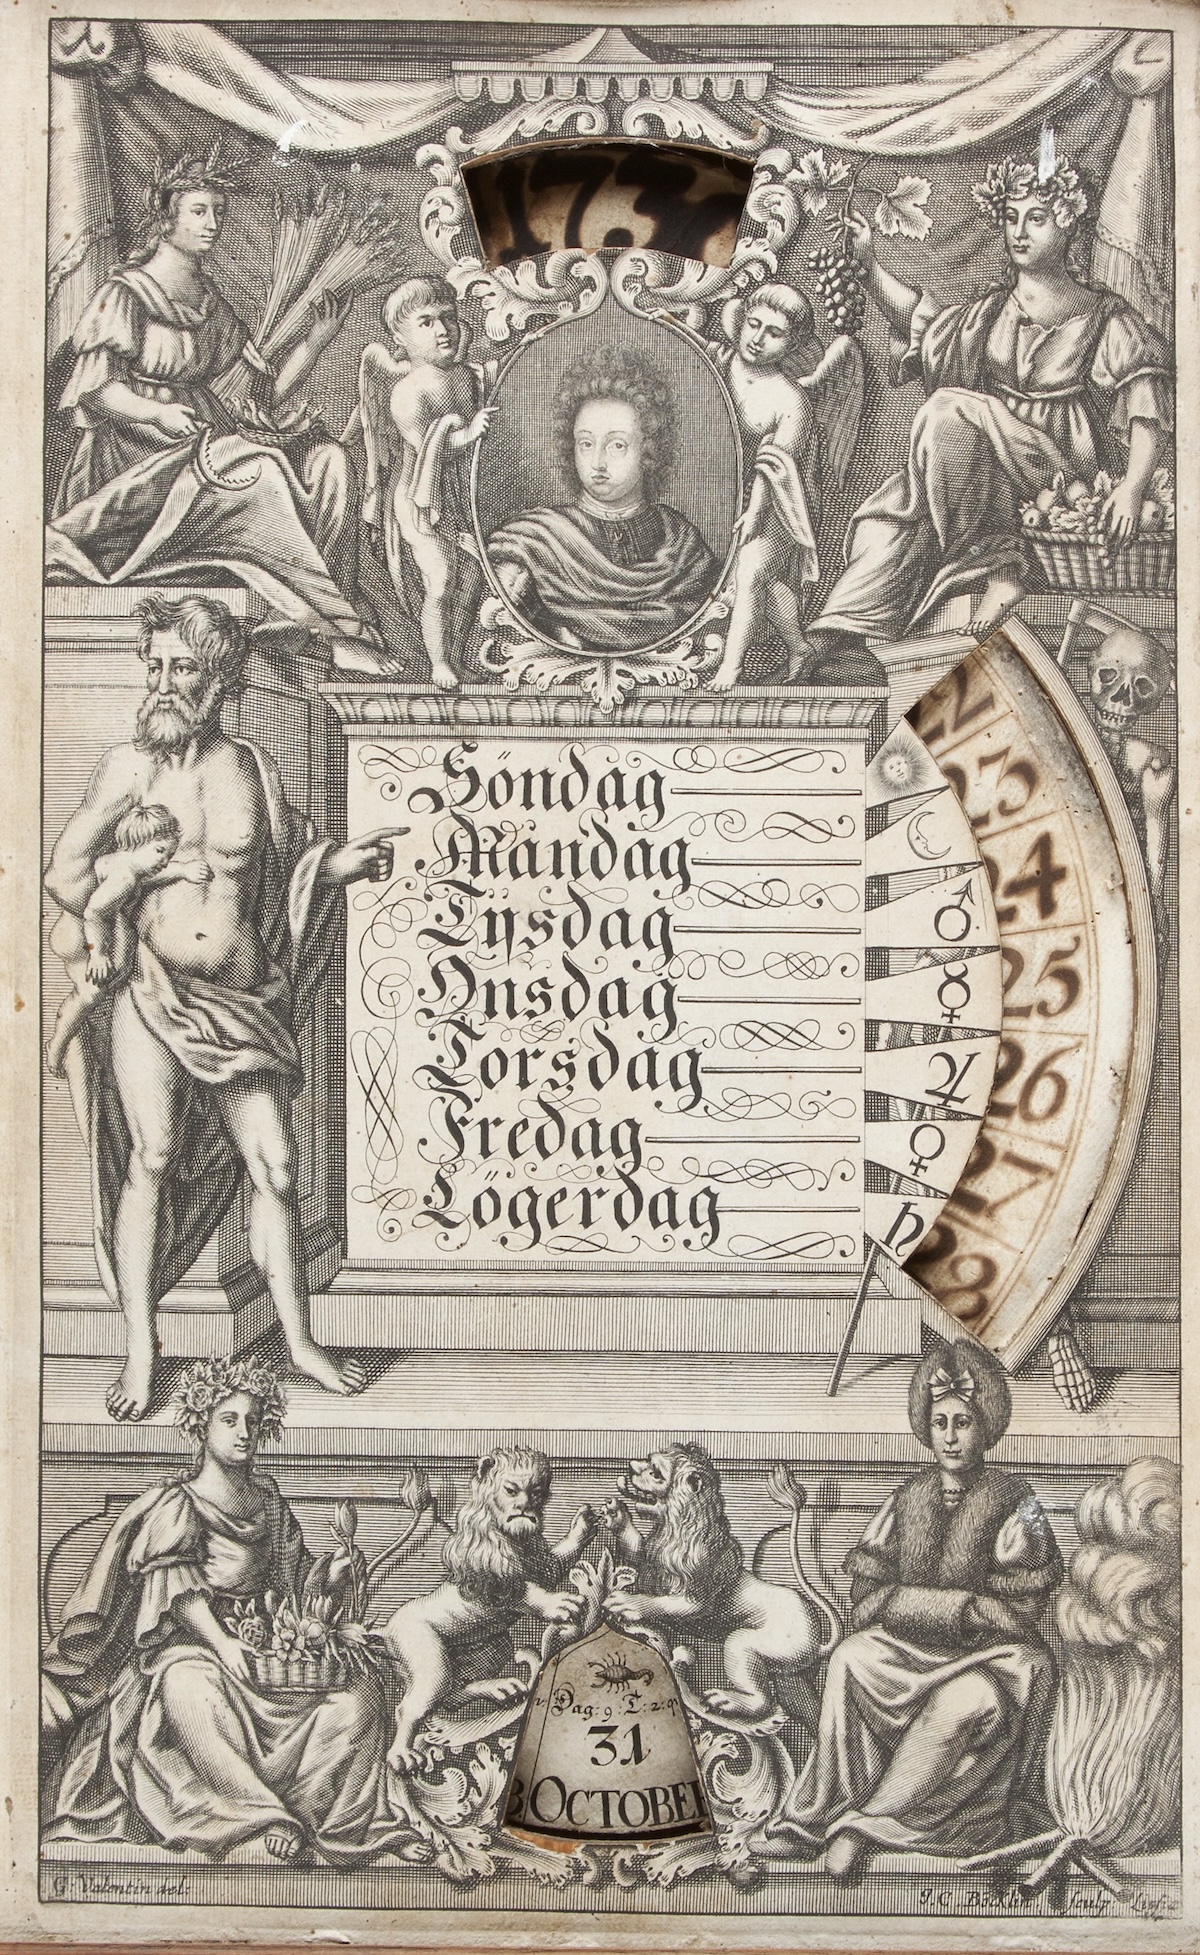 173
Söndag
Mandag
Tysdag
Onsdag
Torsdag
Fredag
Lögerdag
22
23
24
25
26
27
28
Dag: 9 T: 2:
31
OCTOBER
G: Valentin del:
J. C. Böcklin sculp: Lipsiæ